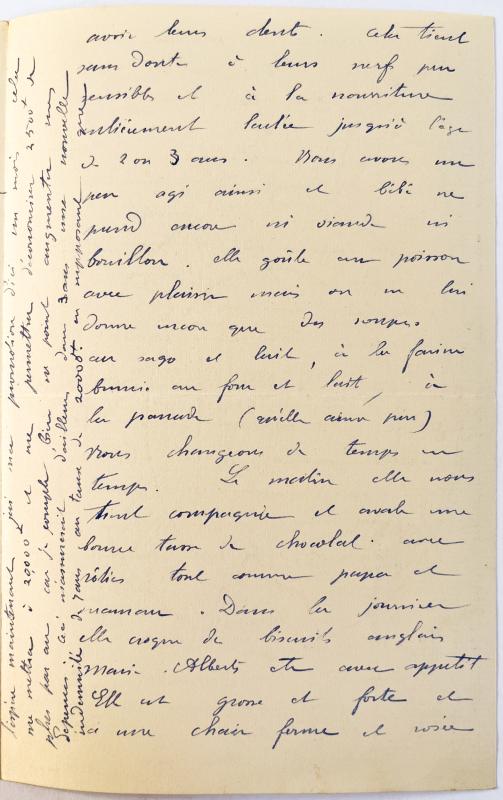 avoir leurs dents. Cela tient
sans doute à leurs nerfs peu
sensibles et à la nourriture
entièrement lactée jusqu'à l'âge
de 2 ou 3 ans. Nous avons un
peu agi ainsi et bébé ne
prend encore ni viande ni
bouillon. elle goûte au poisson
avec plaisir mais on ne lui
donne encore que des soupes
au sago et lait, à la farine
brunie au four et lait, à
la panade (qu'elle aime peu)
Nous changeons de temps en
temps. Le matin elle nous
tient compagnie et avale une
bonne tasse de chocolat avec
rôties tout comme papa et
maman. Dans la journée
elle croque des biscuits anglais
Marie. Alberts etc avec appétit
Elle est grosse et forte et
a une chair ferme et rosée
J'espère maintenant ma promotion d'ici un mois cela
me mettra à 20000 et me permettra d'économiser 2500 de
plus par an car je compte bien ne point augmenter nos
dépenses; ça m'assurerait d'ailleurs dans 3 ans une nouvelle
indemnité de 7 ans au taux de 20000 en supposant que